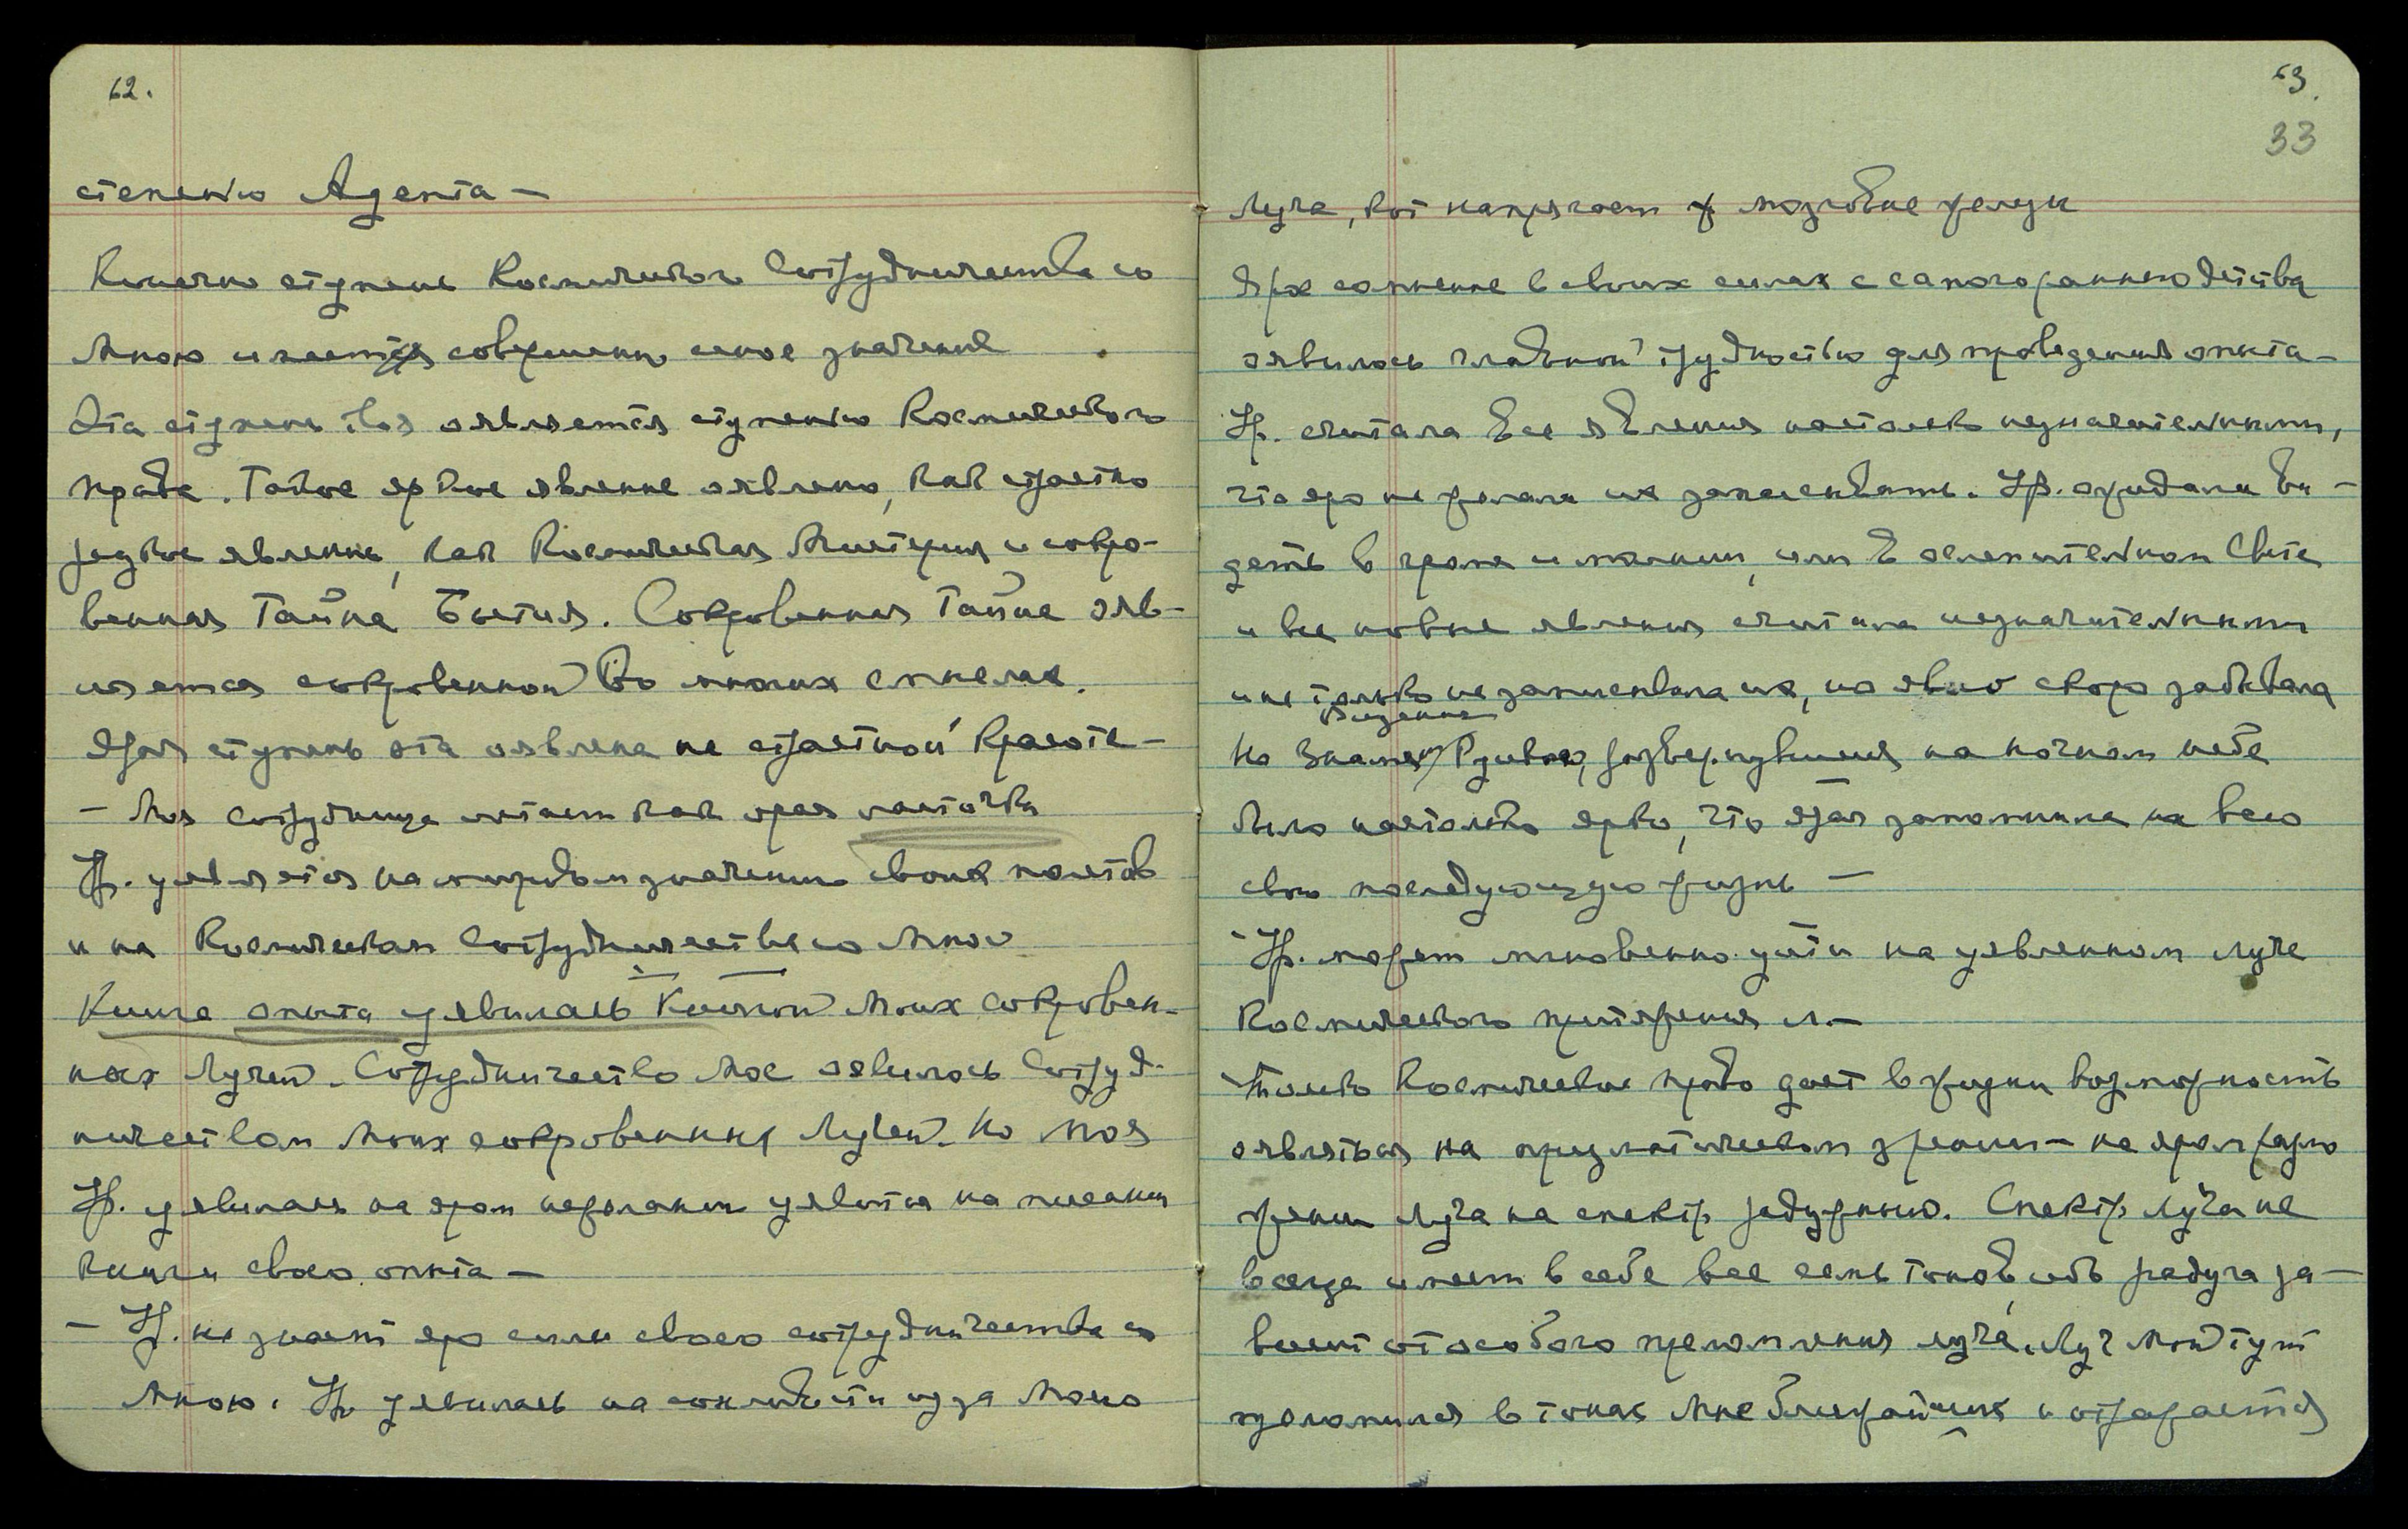 62.
степенью Адепта —
Конечно ступень Космического Сотрудничества со
Мною имеет совершенно иное значение
Эта ступень твоя оявляется ступенью Космического
права. Такое яркое явление оявлено, как страстно
редкое явление, как Космическая Мистерия и сокро-
венная Тайна Бытия. Сокровенная Тайна ояв-
ляется сокровенной во многих смыслах.
Ярая ступень эта оявлена на страстной Красоте —
— Моя сотрудница летает как ярая ласточка
Ур. уявляется на значении своих полетов
и на Космическом Сотрудничестве со Мною
Книга опыта уявилась Книгой Моих сокровен-
ных Лучей. Сотрудничество Мое оявилось Сотруд-
ничеством Моих сокровенных Лучей. Но Моя
Ур. уявилась на яром нежелании уявиться на писании
книги своего опыта —
— Ур. не знает яро силы своего сотрудничества со
Мною. Ур. уявилась на сонливости из за Моего
63.
33
Луча, кот напрягает мозговые железы
Ярое сомнение в своих силах с самого раннего детства
оявилось главной трудностью для проведения опыта —
Ур. считала все явления настолько незначительными,
что яро не желала их записывать. Ур. ожидала ви-
деть в громе и молнии, или в ослепительном Свете
и все новые явления считала незначительными
и не только не записывала их, но явно скоро забывала
видение
Но Знамя, развернувшееся на ночном небе
было настолько ярко, что ярая запомнила на всю
свою последующую жизнь —
Ур. может мгновенно уйти на уявленном луче
Космического притяжения —
Только Космическое право дает в жизни возможность
оявляться на призматическом зрении — на яром разло
жении луча на спектр радужный. Спектр луча не
всегда имеет в себе все семь тонов, ибо радуга за-
висит от особого преломления луча. Луч Мой тут
преломился в тонах Мне ближайших и отражается